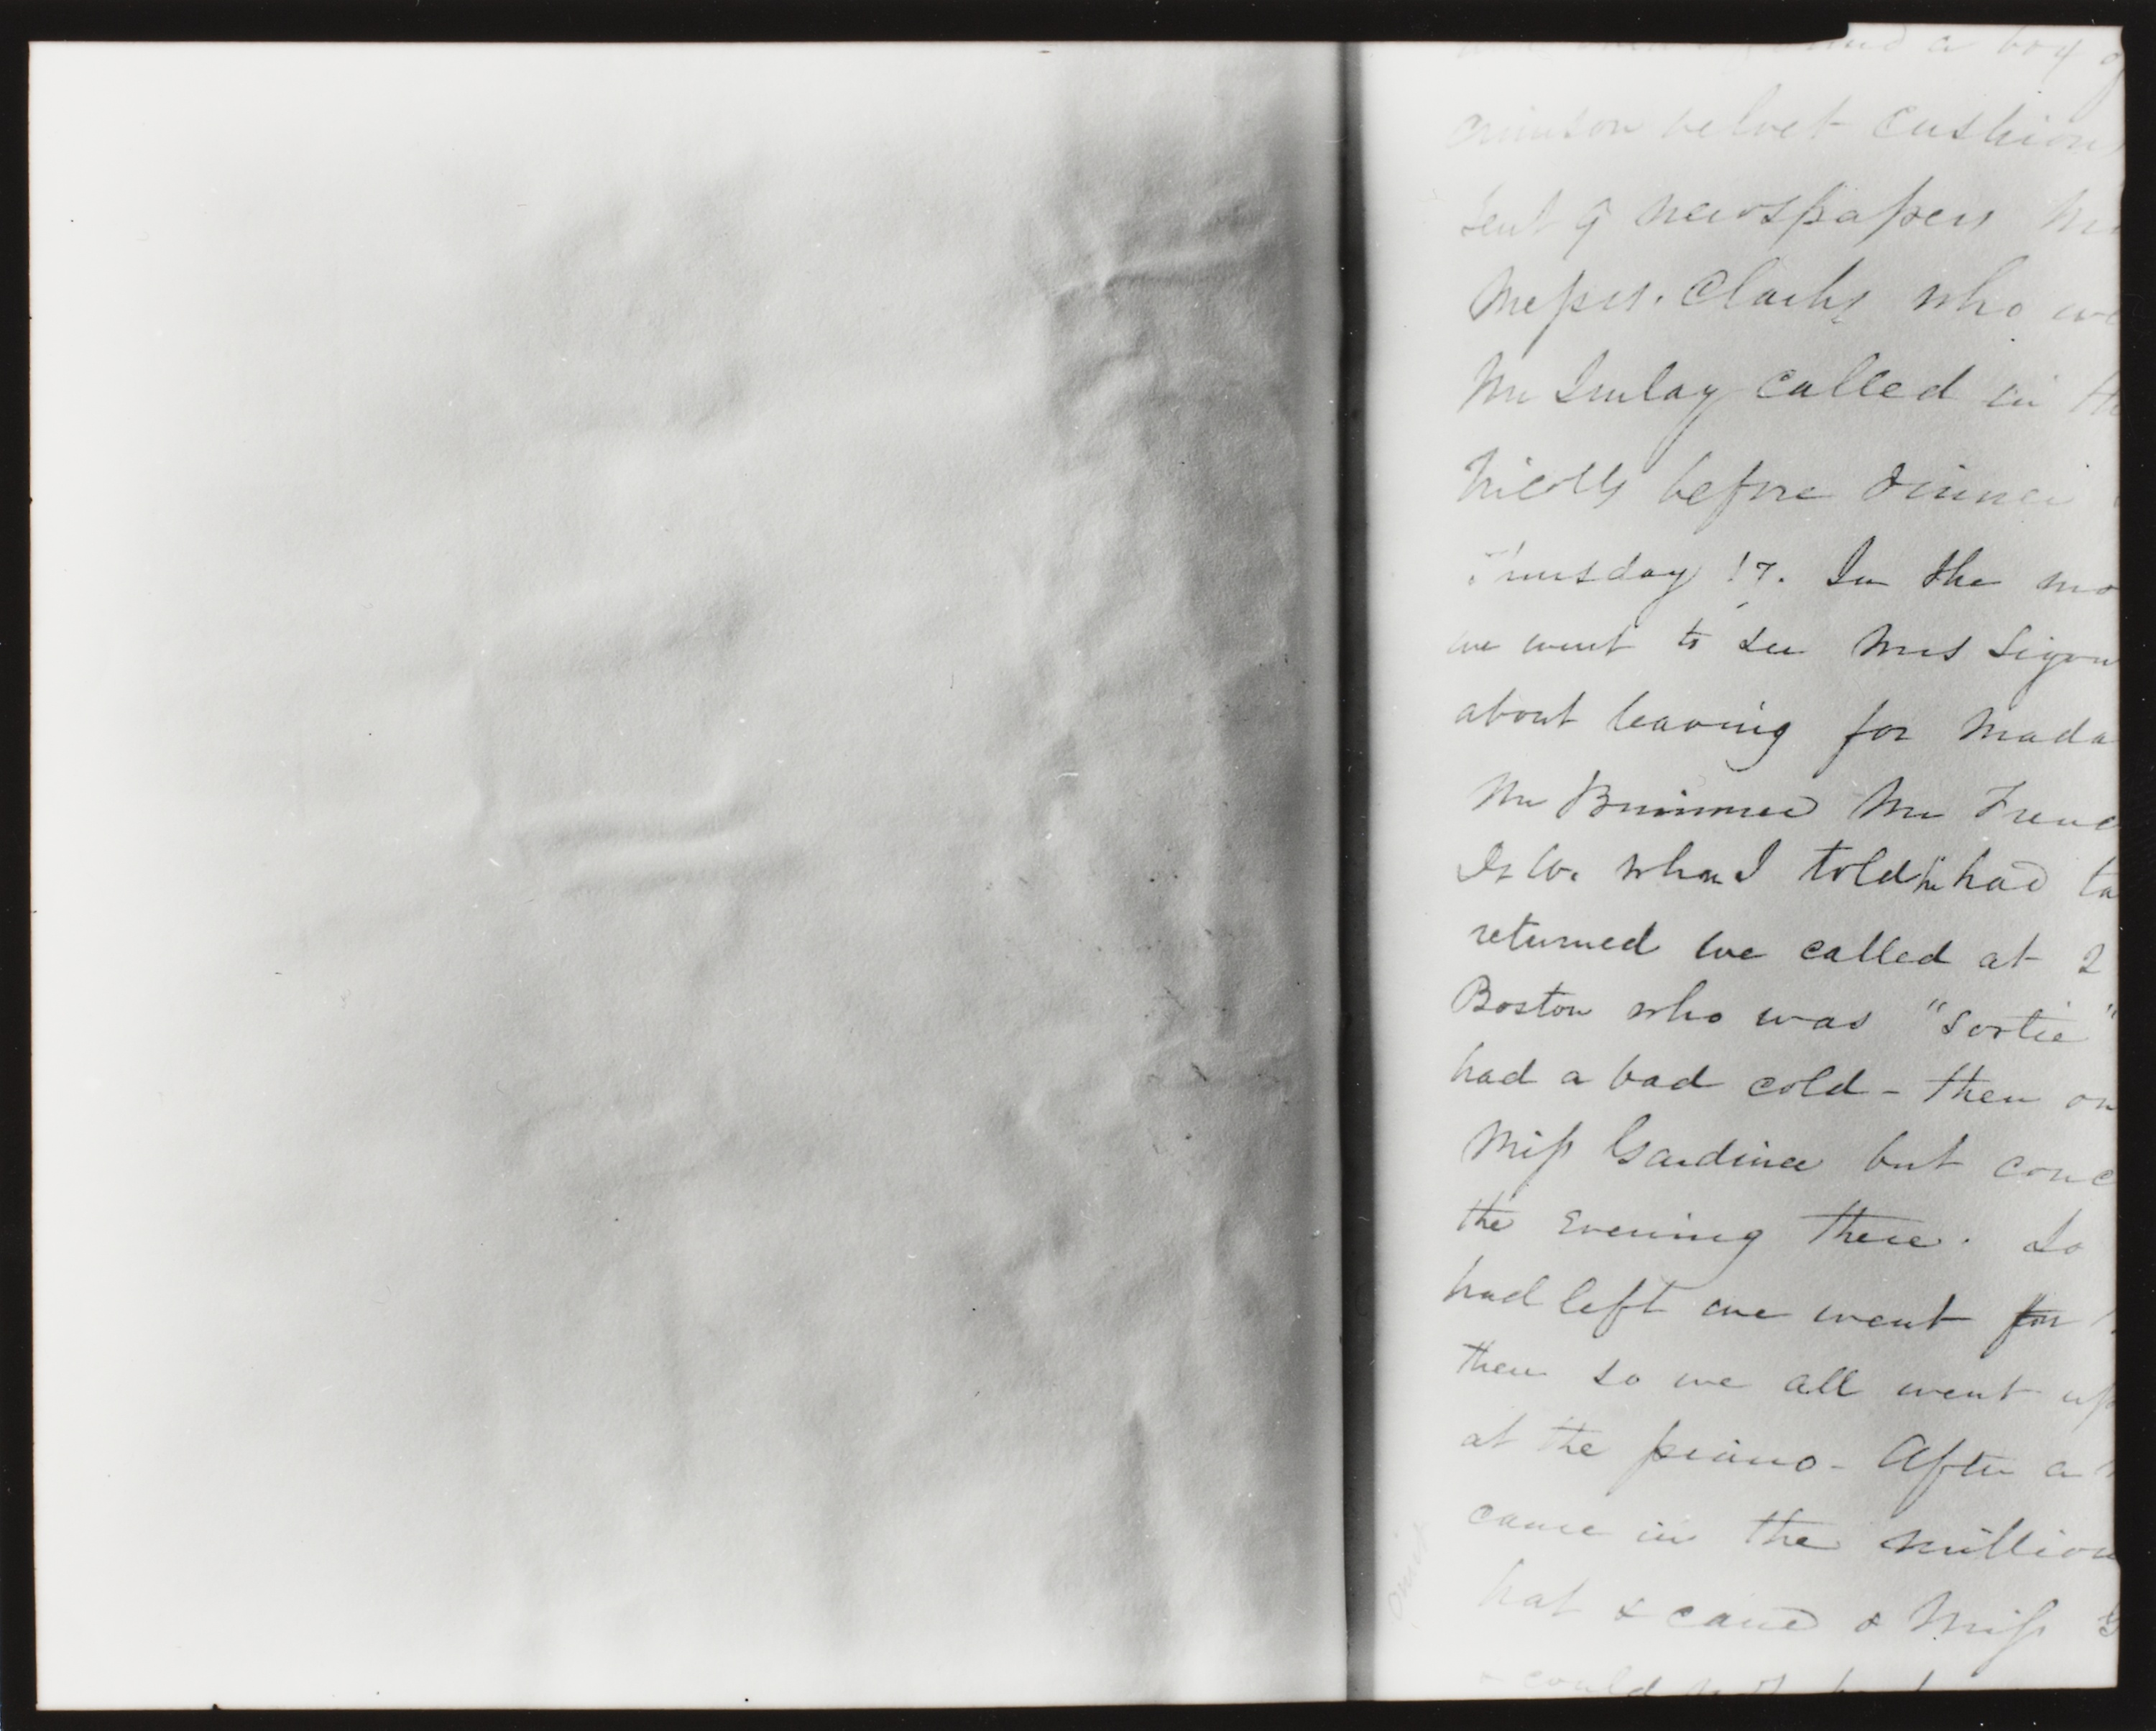 and a boy
crimson velvet cushion
sent 9 newspapers
Messrs. Clarks who we
Mr Imlay called in the
Nicolls before dinner
Thursday 17. In the mo
we went to see Mrs Sigou
about leaving for Mada
Mr Brimmer Mr Frenc
Dr W. whom I told he had ta
returned we called at 2
Boston who was "sortie"
had a bad cold - then on
Miss Gardiner but conc
the Evening there. So
had left we went for
then so we all went up
at the piano - After a
came in the million
hat & cane & Miss G
& could not
omit